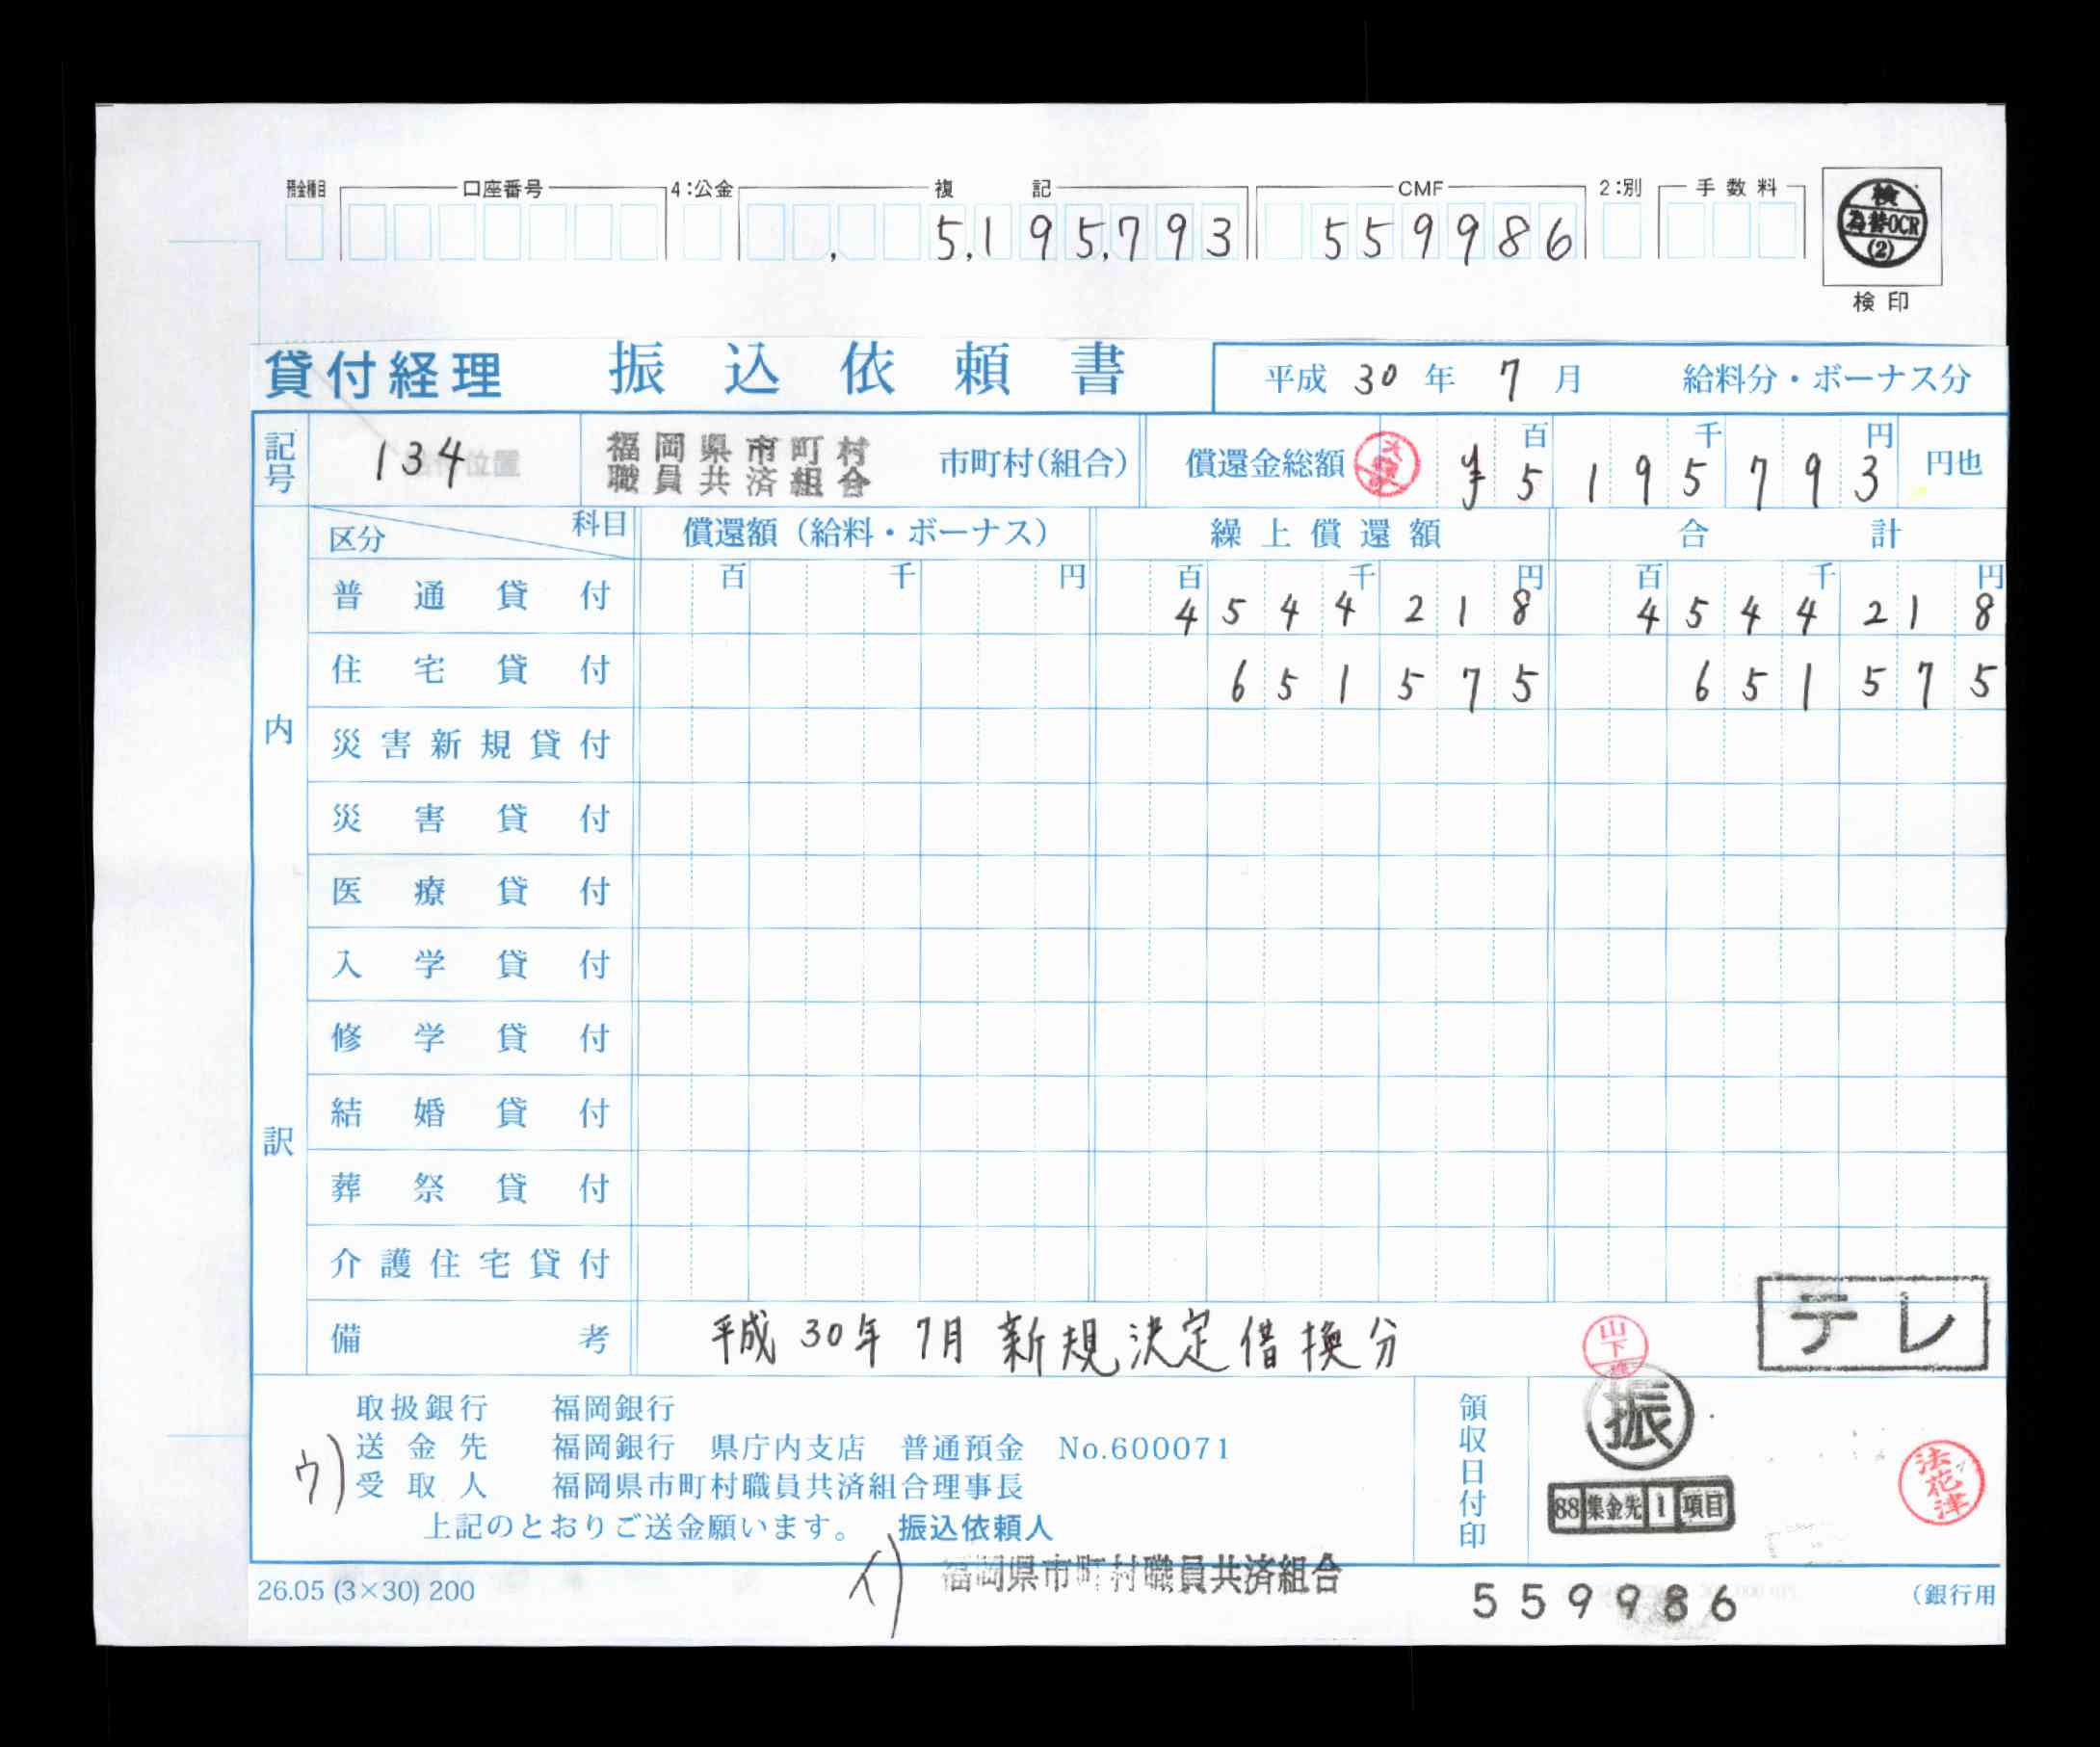 預金種目 口座番号 4:公金 複 記 CMF 2:別 手数料
5,195,793 559986
検
為替OCR
(2)
検印
貸付経理 振込依頼書 平成 30 年 7 月 給料分・ボーナス分
記号 134 福岡県市町村
職員共済組合 市町村(組合) 償還金総額 百 千 円
¥5195793 円也
内訳 区分 科目 償還額(給料・ボーナス) 繰上償還額 合計
百 千 円 百 千 円 百 千 円
普通貸付 4544218 4544218
住宅貸付 651575 651575
災害新規貸付
災害貸付
医療貸付
入学貸付
修学貸付
結婚貸付
葬祭貸付
介護住宅貸付
テレ
備考 平成30年7月新規決定借換分
山下
取扱銀行 福岡銀行
ウ) 送金先 福岡銀行 県庁内支店 普通預金 No.600071
受取人 福岡県市町村職員共済組合理事長
上記のとおりご送金願います。 振込依頼人
イ) 福岡県市町村職員共済組合
領収日付印
振
88 集金先 1 項目
法花津
26.05 (3×30) 200
559986
(銀行用